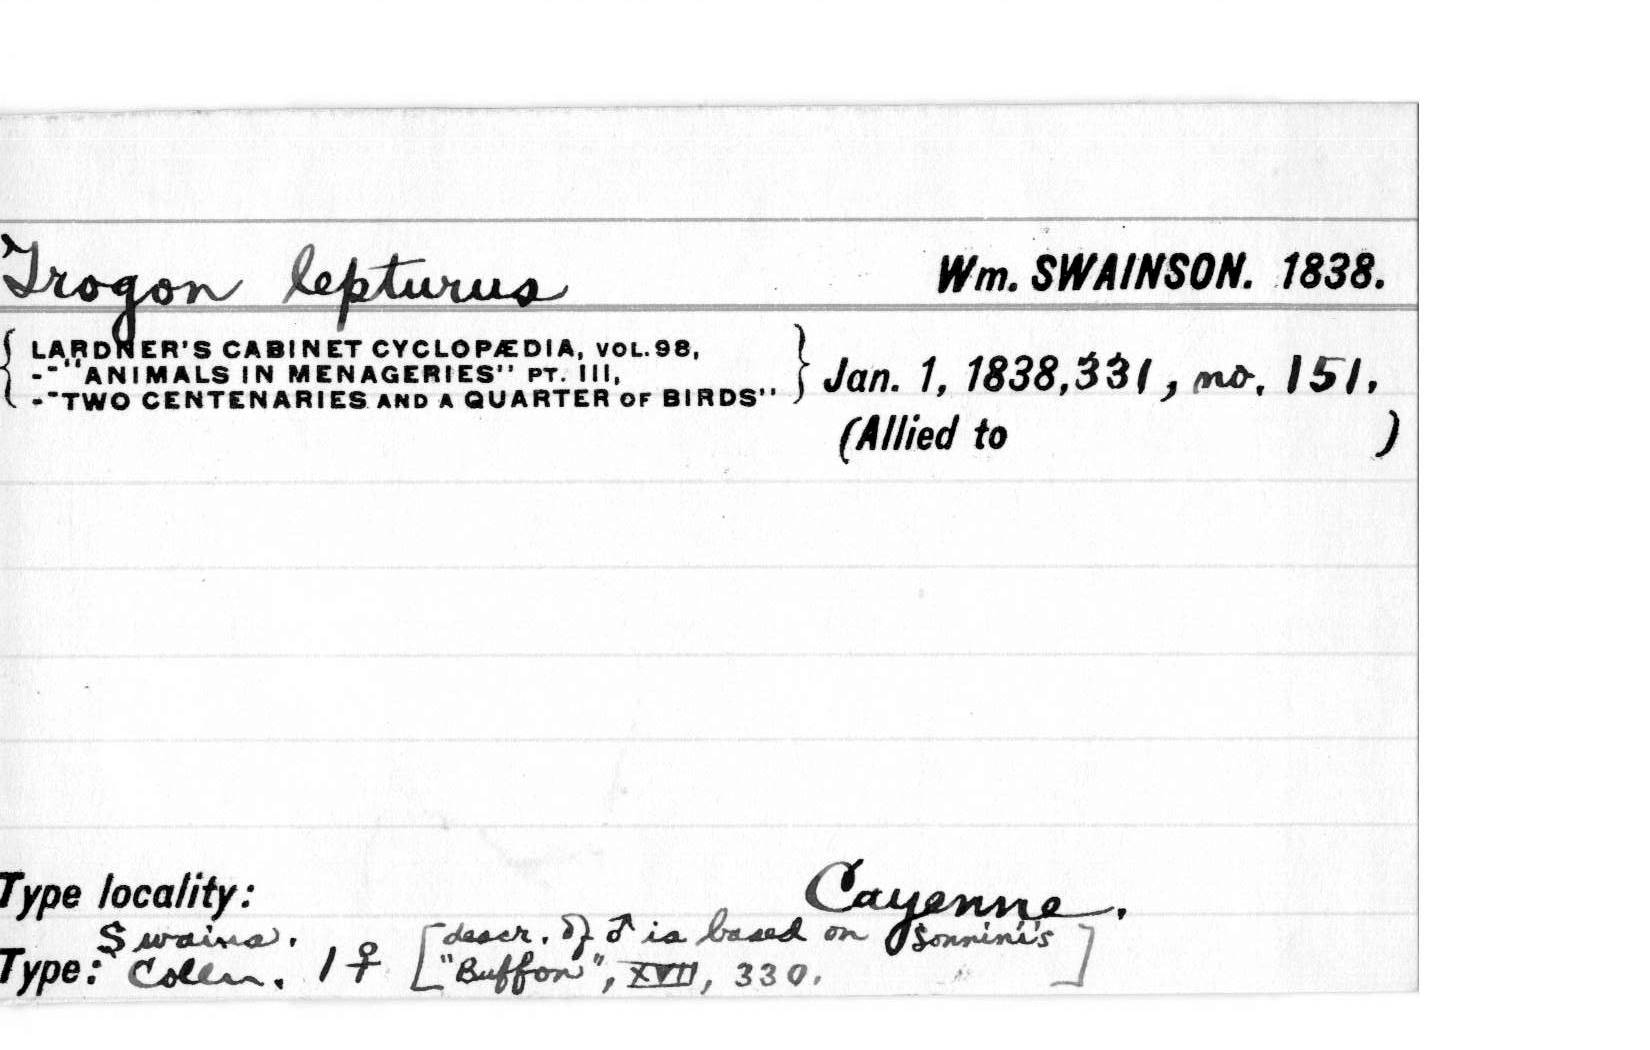 Trogon lepturus Wm. SWAINSON. 1838.
{ LARDNER'S CABINET CYCLOPÆDIA, VOL. 98,
--"ANIMALS IN MENAGERIES" PT. III, } Jan. 1, 1838, 331, no. 151.
-"TWO CENTENARIES AND A QUARTER OF BIRDS"
(Allied to )
Type locality: Cayenne.
Type: Swains. Colln. 1 ♀ [descr. of ♂ is based on Sonnini's
"Buffon", XVII, 330.]